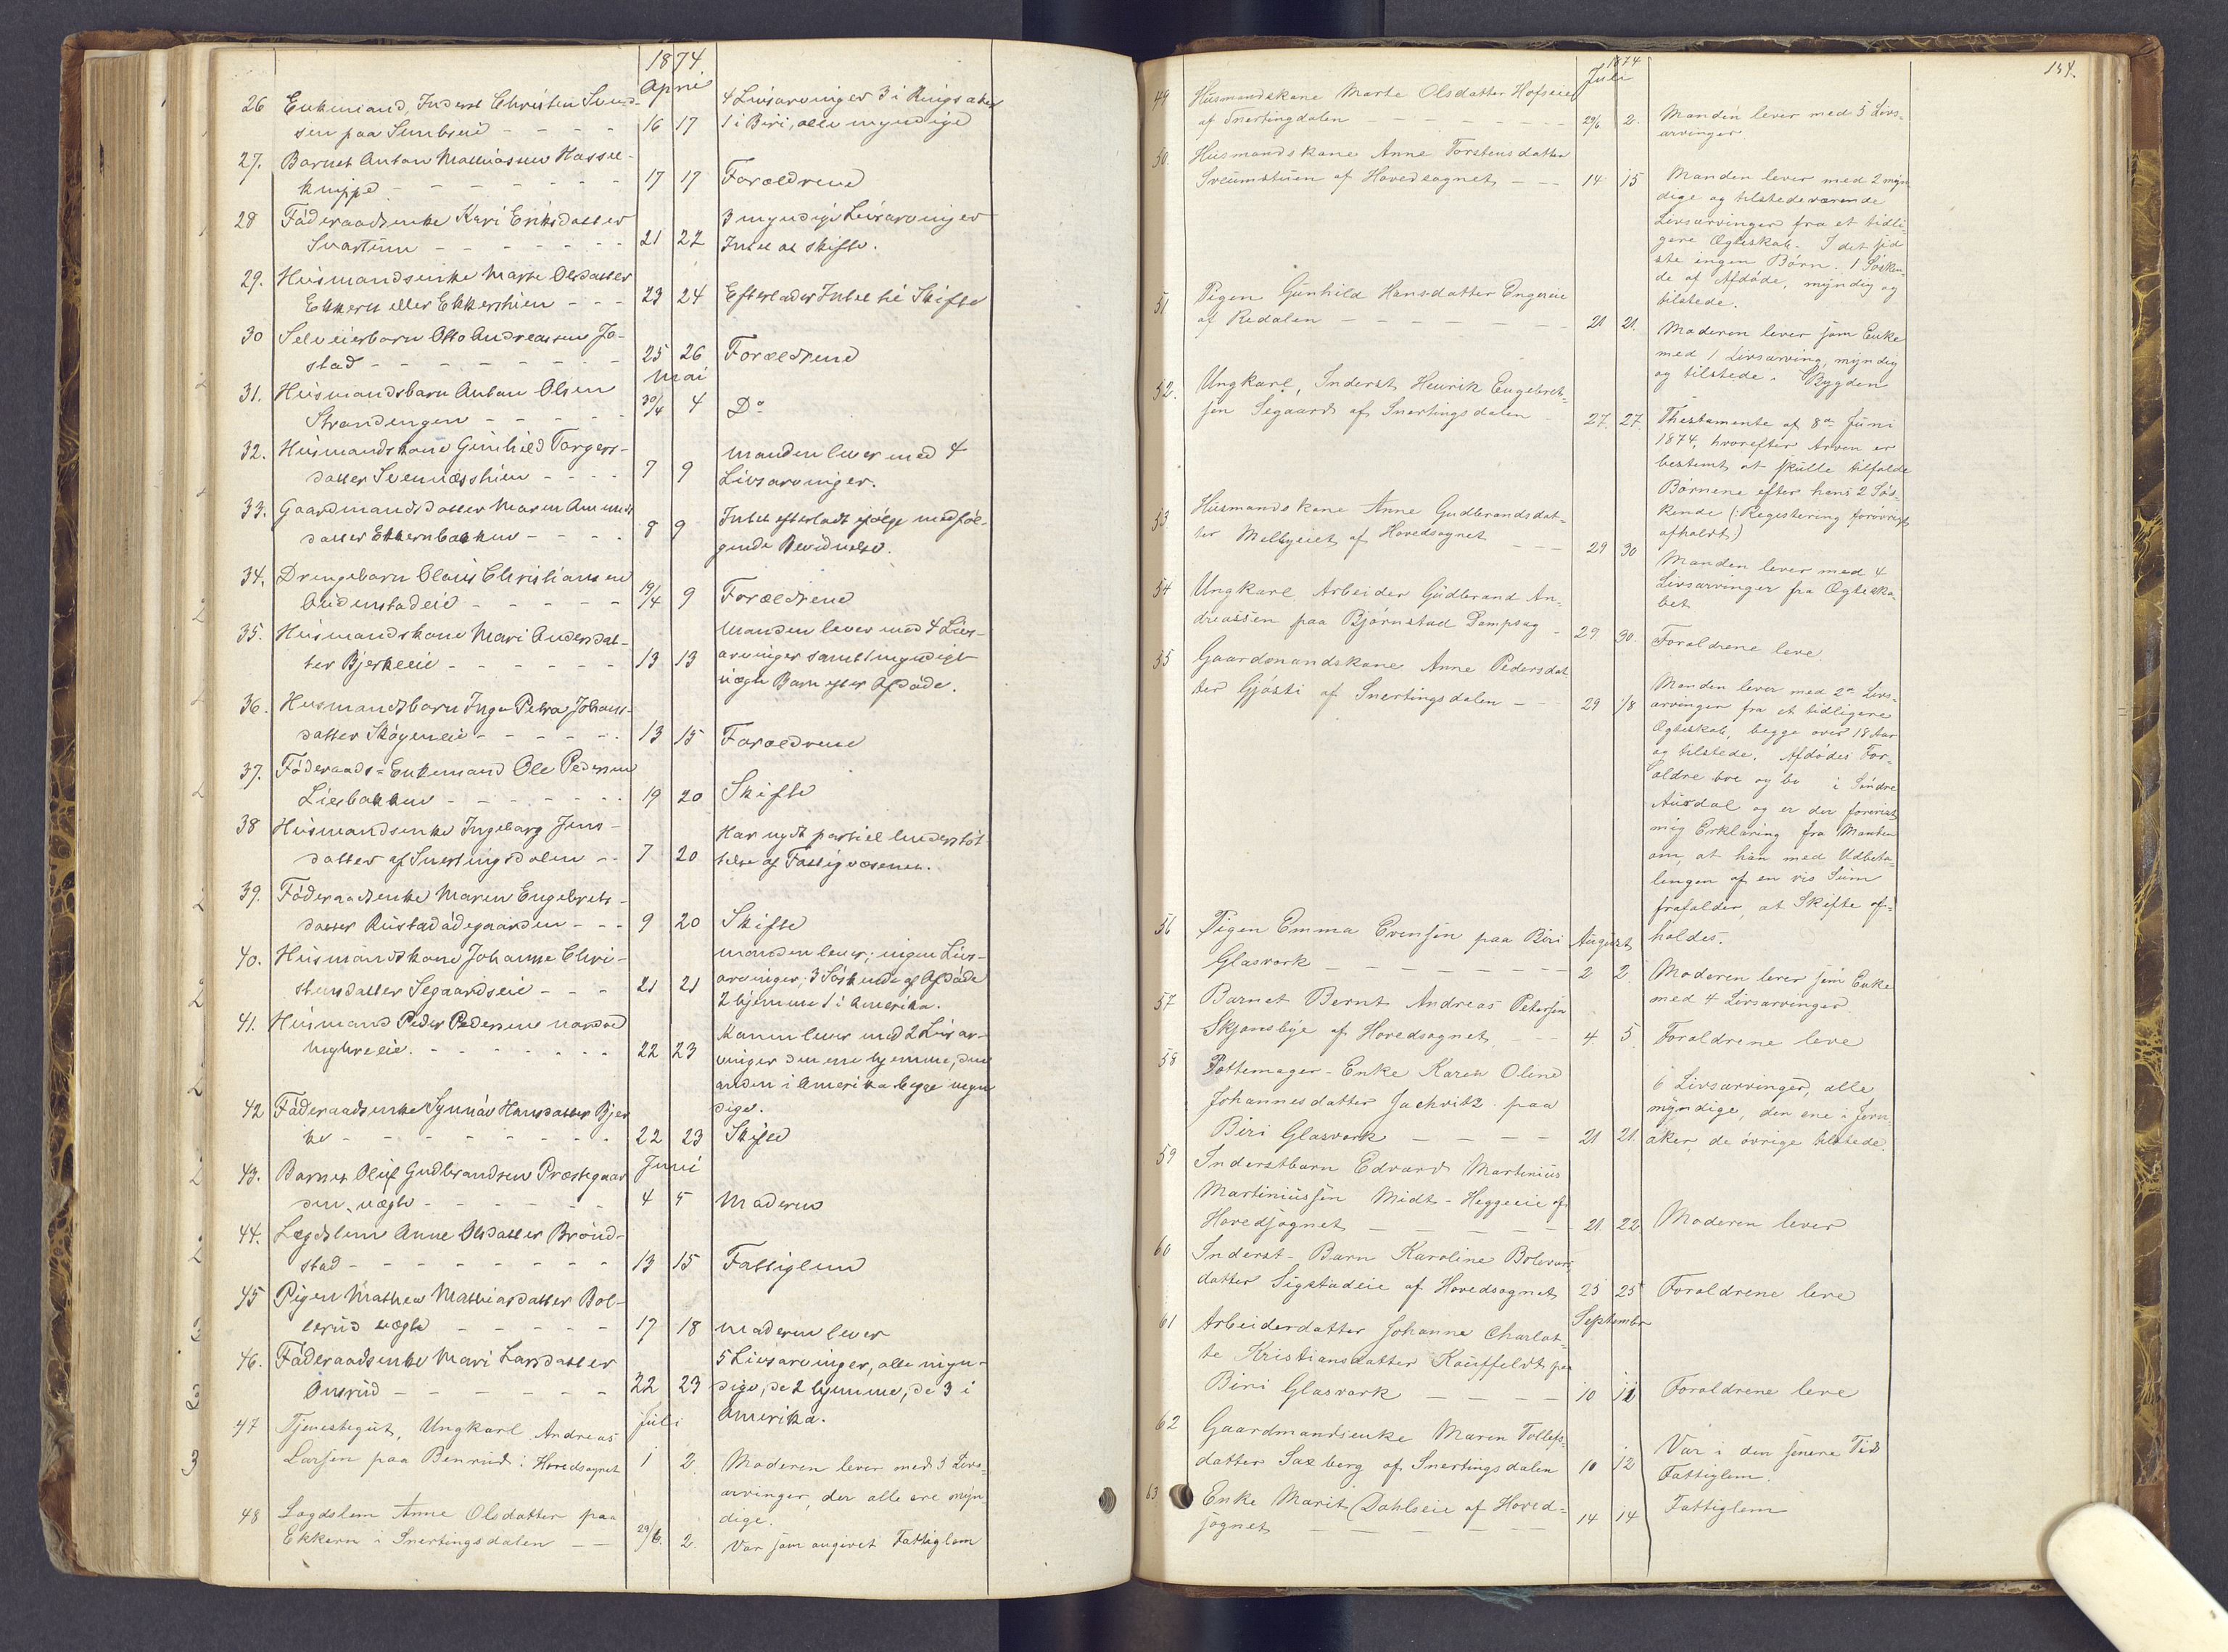 1874.
April
26 Enkemand, Inderst Christen Svend-
sen paa Sembseie - - - 16 17
4 Livsarvinger 3 i Ringsaker
1 i Biri, alle myndige
27. Barnet Anton Mathiassen Hassel-
knippe - - - - 17 17 Forældrene
28 Föderaadsenke Kari Eriksdatter
Svartuen - - - - 21 22
3 myndige Livsarvinger
Intet at skifte.
29. Husmandsenke Marte Olsdatter
Ekkern eller Ekkershien - - - 23 24 Efterlader Intet til Skifte
30 Selveierbarn Otto Andreassen Jo-
stad - - - - 25 26 Forældrene
Mai
31. Husmandsbarn Anton Olsen
Strandengen - - - 30/4 4 Do
32. Husmandskone Gunhild Torgers-
datter Svennæsshien - - - 7 9
Manden lever med 4
Livsarvinger.
33. Gaardmandsdatter Maren Amunds
datter Ekkernbakken - - - 8 9
Intet efterladt ifølge medføl-
gende Bevidnelse.
34. Drengebarn Olaus Christiansen
Audenstadeie - - - - 19/4 9 Forældrene
35. Husmandskone Mari Andersdat-
ter Bjerkeeie - - - - 13 13
Manden lever med 4 Livs-
arvinger samt 1 myndigt
uægte Barn efter Afdøde.
36. Husmandsbarn Inga Petra Johans-
datter Skögeneie - - - - 13 15 Forældrene
37. Föderaads-Enkemand Ole Pedersen
Liesbakken - - - - 19 20 Skifte
38 Husmandsenke Ingeborg Jens-
datter af Snertingsdalen - - 7 20
Har nydt partiel Understöt
telse af Fattigvæsenet.
39. Föderaadsenke Maren Engebrets-
datter Rustadödegaarden - - - 9 20 Skifte
40. Husmandskone Johanne Chri-
stensdatter Segaardseie - - - 21 21
Manden lever; ingen Livs-
arvinger; 3 Söskende af Afdöde
2 hjemme 1 i Amerika.
41. Husmand Peder Pedersen nordre
Myhreeie. - - - - 22 23
Konen lever med 2 Livsar-
vinger den ene hjemme, den
anden i Amerika begge myn
dige.
42 Föderaadsenke Synnöv Hansdatter Bjer
ke - - - - 22 23 Skifte
Juni
43. Barnet Oluf Gudbrandsen Præstegaar
den, uægte - - - - 4 5 Moderen
44. Lægdslem Anne Olsdatter Brönd-
stad - - - - 13 15 Fattiglem
45 Pigen Mathea Mathiasdatter Bol-
lerud uægte - - - - 17 18 Moderen lever
46. Föderaadsenke Mari Larsdatter
Onsrud - - - - 22 23
5 Livsarvinger, alle myn-
dige, de 2 hjemme, de 3 i
Amerika.
Juli
47 Tjenestegut, Ungkarl Andreas
Larsen paa Benrud i Hovedsognet 1 2.
Moderen lever med 3 Livs-
arvinger, der alle ere myn-
dige.
48 Lægdslem Anne Olsdatter paa
Ekkern i Snertingsdalen - - 29/6. 2. Var som angivet Fattiglem
134.
1874
Juli
49 Husmandskone Marte Olsdatter Hofseie
af Snertingdalen - - - - 29/6 2.
Manden lever med 5 Livs-
arvinger.
50. Husmandskone Anne Torstensdatter
Sveumstuen af Hovedsognet - - - 14 15
Manden lever med 2 myn
dige og tilstedeværende
Livsarvinger fra et tidli-
gere Ægteskab. I det sid
ste ingen Börn. 1 Sösken-
de af Afdöde, myndig og
tilstede.
51 Pigen Gunhild Hansdatter Engereie
af Redalen - - - - 21 21.
Moderen lever som Enke
med 1 Livsarving, myndig
og tilstede i Bygden
52. Ungkarl, Inderst Henrik Engebret-
sen Segaard af Snertingsdalen 27. 27.
Thestamente af 8de Juni
1874, hvorefter Arven er
bestemt at skulle tilfalde
Börnene efter hans 2 Sös-
kende (: Registering forövrigt
afholdt)
53 Husmandskone Anne Gudbrandsdat-
ter Melbyeiet af Hovedsognet - - - 29 30
Manden lever med 4
Livsarvinger fra Ægteska-
bet
54 Ungkarl, Arbeider Gudbrand An-
dreassen paa Bjørnstad Dampsag - 29 30. Forældrene leve
55 Gaardmandskone Anne Pedersdat
ter Gjösti af Snertingsdalen - - 29 1/8
Manden lever med 2de Livs-
arvinger fra et tidligere
Ægteskab, begge over 18 Aar
og tilstede. Afdödes For-
ældre leve og bo i Söndre
Aurdal og er der forevist
mig Erklæring fra Manden
om, at han med Udbeta-
lingen af en vis Sum
frafalder, at Skifte af-
holdes.
August
56 Pigen Emma Evensen paa Biri
Glasværk - - - - 2 2.
Moderen lever som Enke
med 4 Livsarvinger.
57 Barnet Bernt Andreas Petersen
Skjønsbye af Hovedsognet - - - 4. 5. Forældrene leve
58 Pottemager-Enke Karen Oline
Johannesdatter Jachvitz paa
Biri Glasværk - - - - 21 21.
6 Livsarvinger, alle
myndige, den ene i Jevn-
aker, de övrige tilstede.
59 Inderstbarn Edvard Martinius
Martiniussen Midt-Heggeeie af
Hovedsognet - - - - 21 22. Moderen lever
60 Inderst-Barn Karoline Bolevor
datter Sigstadeie af Hovedsognet 25 25 Forældrene leve
September
61 Arbeiderdatter Johanne Charlot-
te Kristiansdatter Kauffeldt paa
Biri Glasværk - - - - 10 11 Forældrene leve
62 Gaardmandsenke Maren Tollefs-
datter Saxberg af Snertingsdalen 10 12
Var i den senere Tid
Fattiglem.
63 Enke Marit Dahlseie af Hoved-
sognet - - - - 14 14 Fattiglem